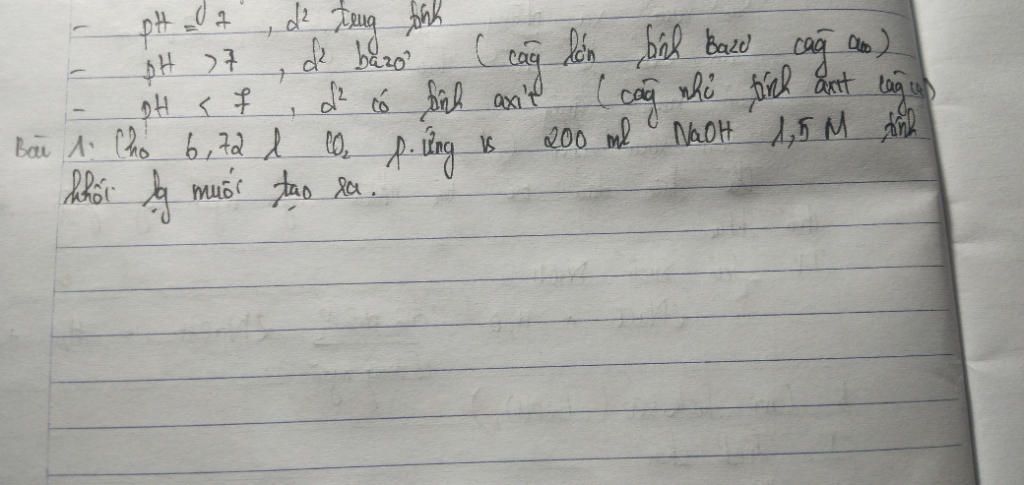 - pH = 7 , d² trung tính
- pH > 7 , d² bazơ ( càg lớn tính bazơ càg cao )
- pH < 7 , d² có tính axit ( càg nhỏ tính axit càg cao )
Bài 1: Cho 6,72 l CO₂ p.ứng vs 200 ml NaOH 1,5 M tính
khối lg muối tạo ra.